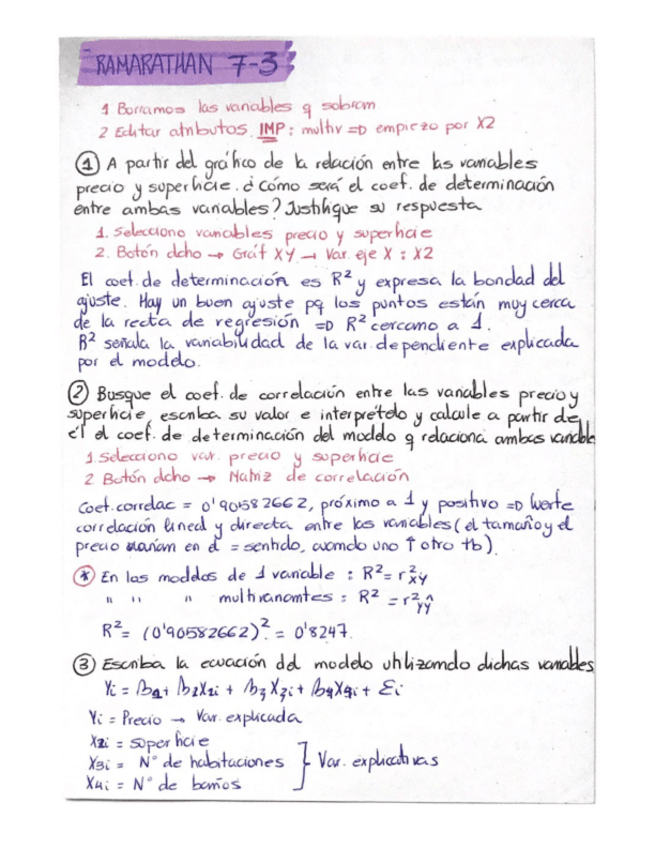 RAMARATHAN 7-3
1 Borramos las variables q sobran
2 Editar atributos IMP: multiv ⇒ empiezo por X2
① A partir del gráfico de la relación entre las variables
precio y superficie. ¿Cómo será el coef. de determinación
entre ambas variables? Justifique su respuesta
1. Selecciono variables precio y superficie
2. Botón dcho → Gráf XY → Var. eje X : X2
El coef. de determinación es R² y expresa la bondad del
ajuste. Hay un buen ajuste pq los puntos están muy cerca
de la recta de regresión ⇒ R² cercano a 1.
R² señala la variabilidad de la var. dependiente explicada
por el modelo.
② Busque el coef. de correlación entre las variables precio y
superficie, escriba su valor e interprételo y calcule a partir de
él el coef. de determinación del modelo q relaciona ambas variable
1. Selecciono var. precio y superficie
2 Botón dcho → Matriz de correlación
Coef. correlac = 0'90582662, próximo a 1 y positivo ⇒ fuerte
correlación lineal y directa entre las variables (el tamaño y el
precio varían en el = sentido, cuando uno ↑ otro tb).
* En los modelos de 1 variable : R² = r²xy
" " " multivariantes : R² = r²yŷ
R² = (0'90582662)² = 0'8247.
③ Escriba la ecuación del modelo utilizando dichas variables
Yi = β1 + β2X2i + β3X3i + β4X4i + Ei
Yi = Precio → Var. explicada
X2i = superficie
X3i = Nº de habitaciones } Var. explicativas
X4i = Nº de baños